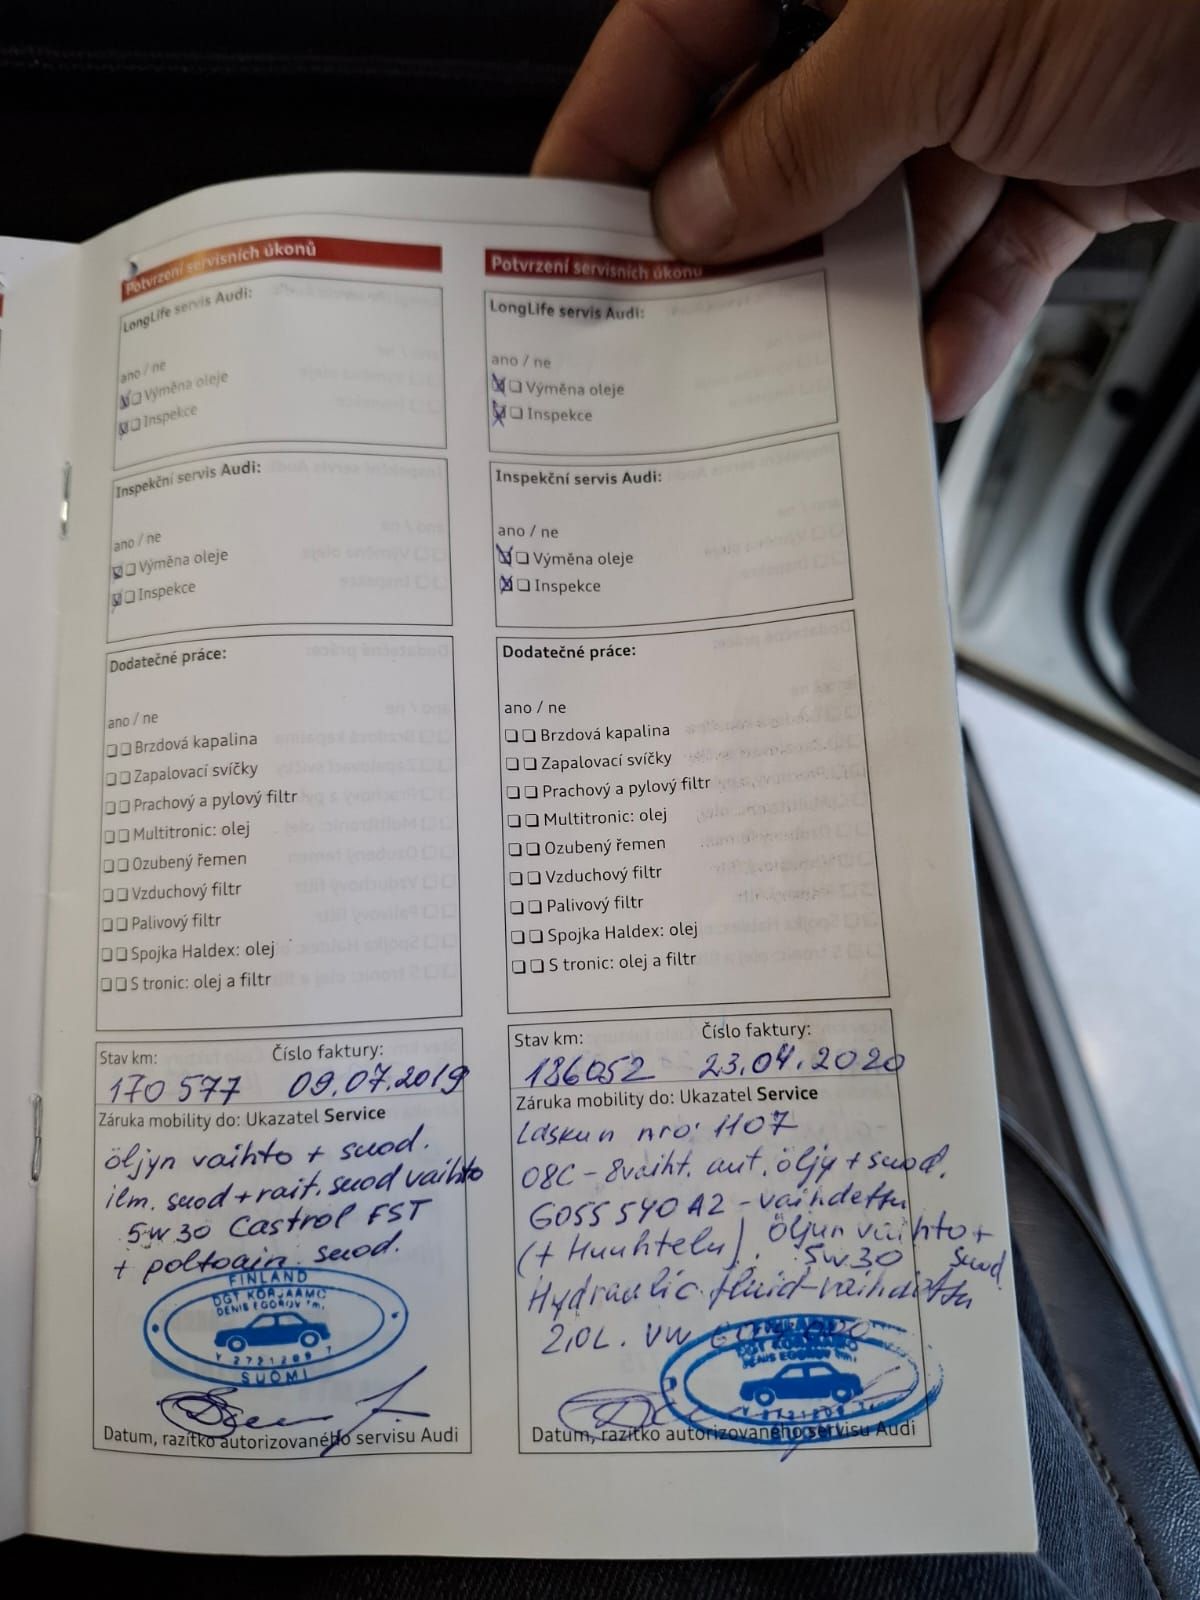 Potvrzení servisních úkonů
LongLife servis Audi:
ano / ne
Výměna oleje
Inspekce
Inspekční servis Audi:
ano / ne
Výměna oleje
Inspekce
Dodatečné práce:
ano / ne
Brzdová kapalina
Zapalovací svíčky
Prachový a pylový filtr
Multitronic: olej
Ozubený řemen
Vzduchový filtr
Palivový filtr
Spojka Haldex: olej
S tronic: olej a filtr
Stav km: Číslo faktury:
170 577 09.07.2019
Záruka mobility do: Ukazatel Service
öljyn vaihto + suod.
ilm. suod + rait. suod vaihto
5w30 Castrol FST
+ poltoain. suod.
FINLAND
DGT KORJAAMO
DENIS EGOROV Tmi.
SUOMI
Datum, razítko autorizovaného servisu Audi
Potvrzení servisních úkonů
LongLife servis Audi:
ano / ne
Výměna oleje
Inspekce
Inspekční servis Audi:
ano / ne
Výměna oleje
Inspekce
Dodatečné práce:
ano / ne
Brzdová kapalina
Zapalovací svíčky
Prachový a pylový filtr
Multitronic: olej
Ozubený řemen
Vzduchový filtr
Palivový filtr
Spojka Haldex: olej
S tronic: olej a filtr
Stav km: Číslo faktury:
186052 23.04.2020
Záruka mobility do: Ukazatel Service
Laskun nro: 1107
08C - 8vaiht. aut. öljy + suod.
G055 540 A2 - vaihdettu
(+ Huuhtelu). öljyn vaihto +
5w30 suod.
Hydraulic fluid - vaihdettu
2,0L. VW
DGT KORJAAMO
DENIS EGOROV Tmi.
Datum, razítko autorizovaného servisu Audi